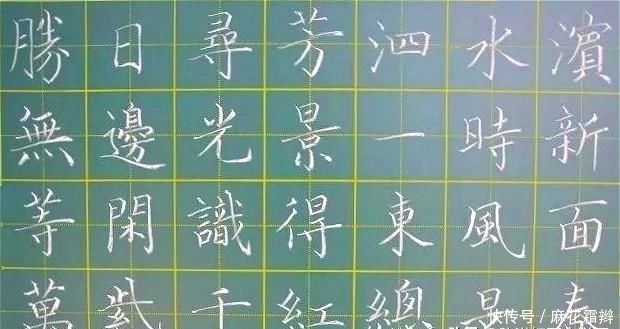 勝日尋芳泗水濱
無邊光景一時新
等閑識得東風面
萬紫千紅總是春
快传号／麻花霜辫